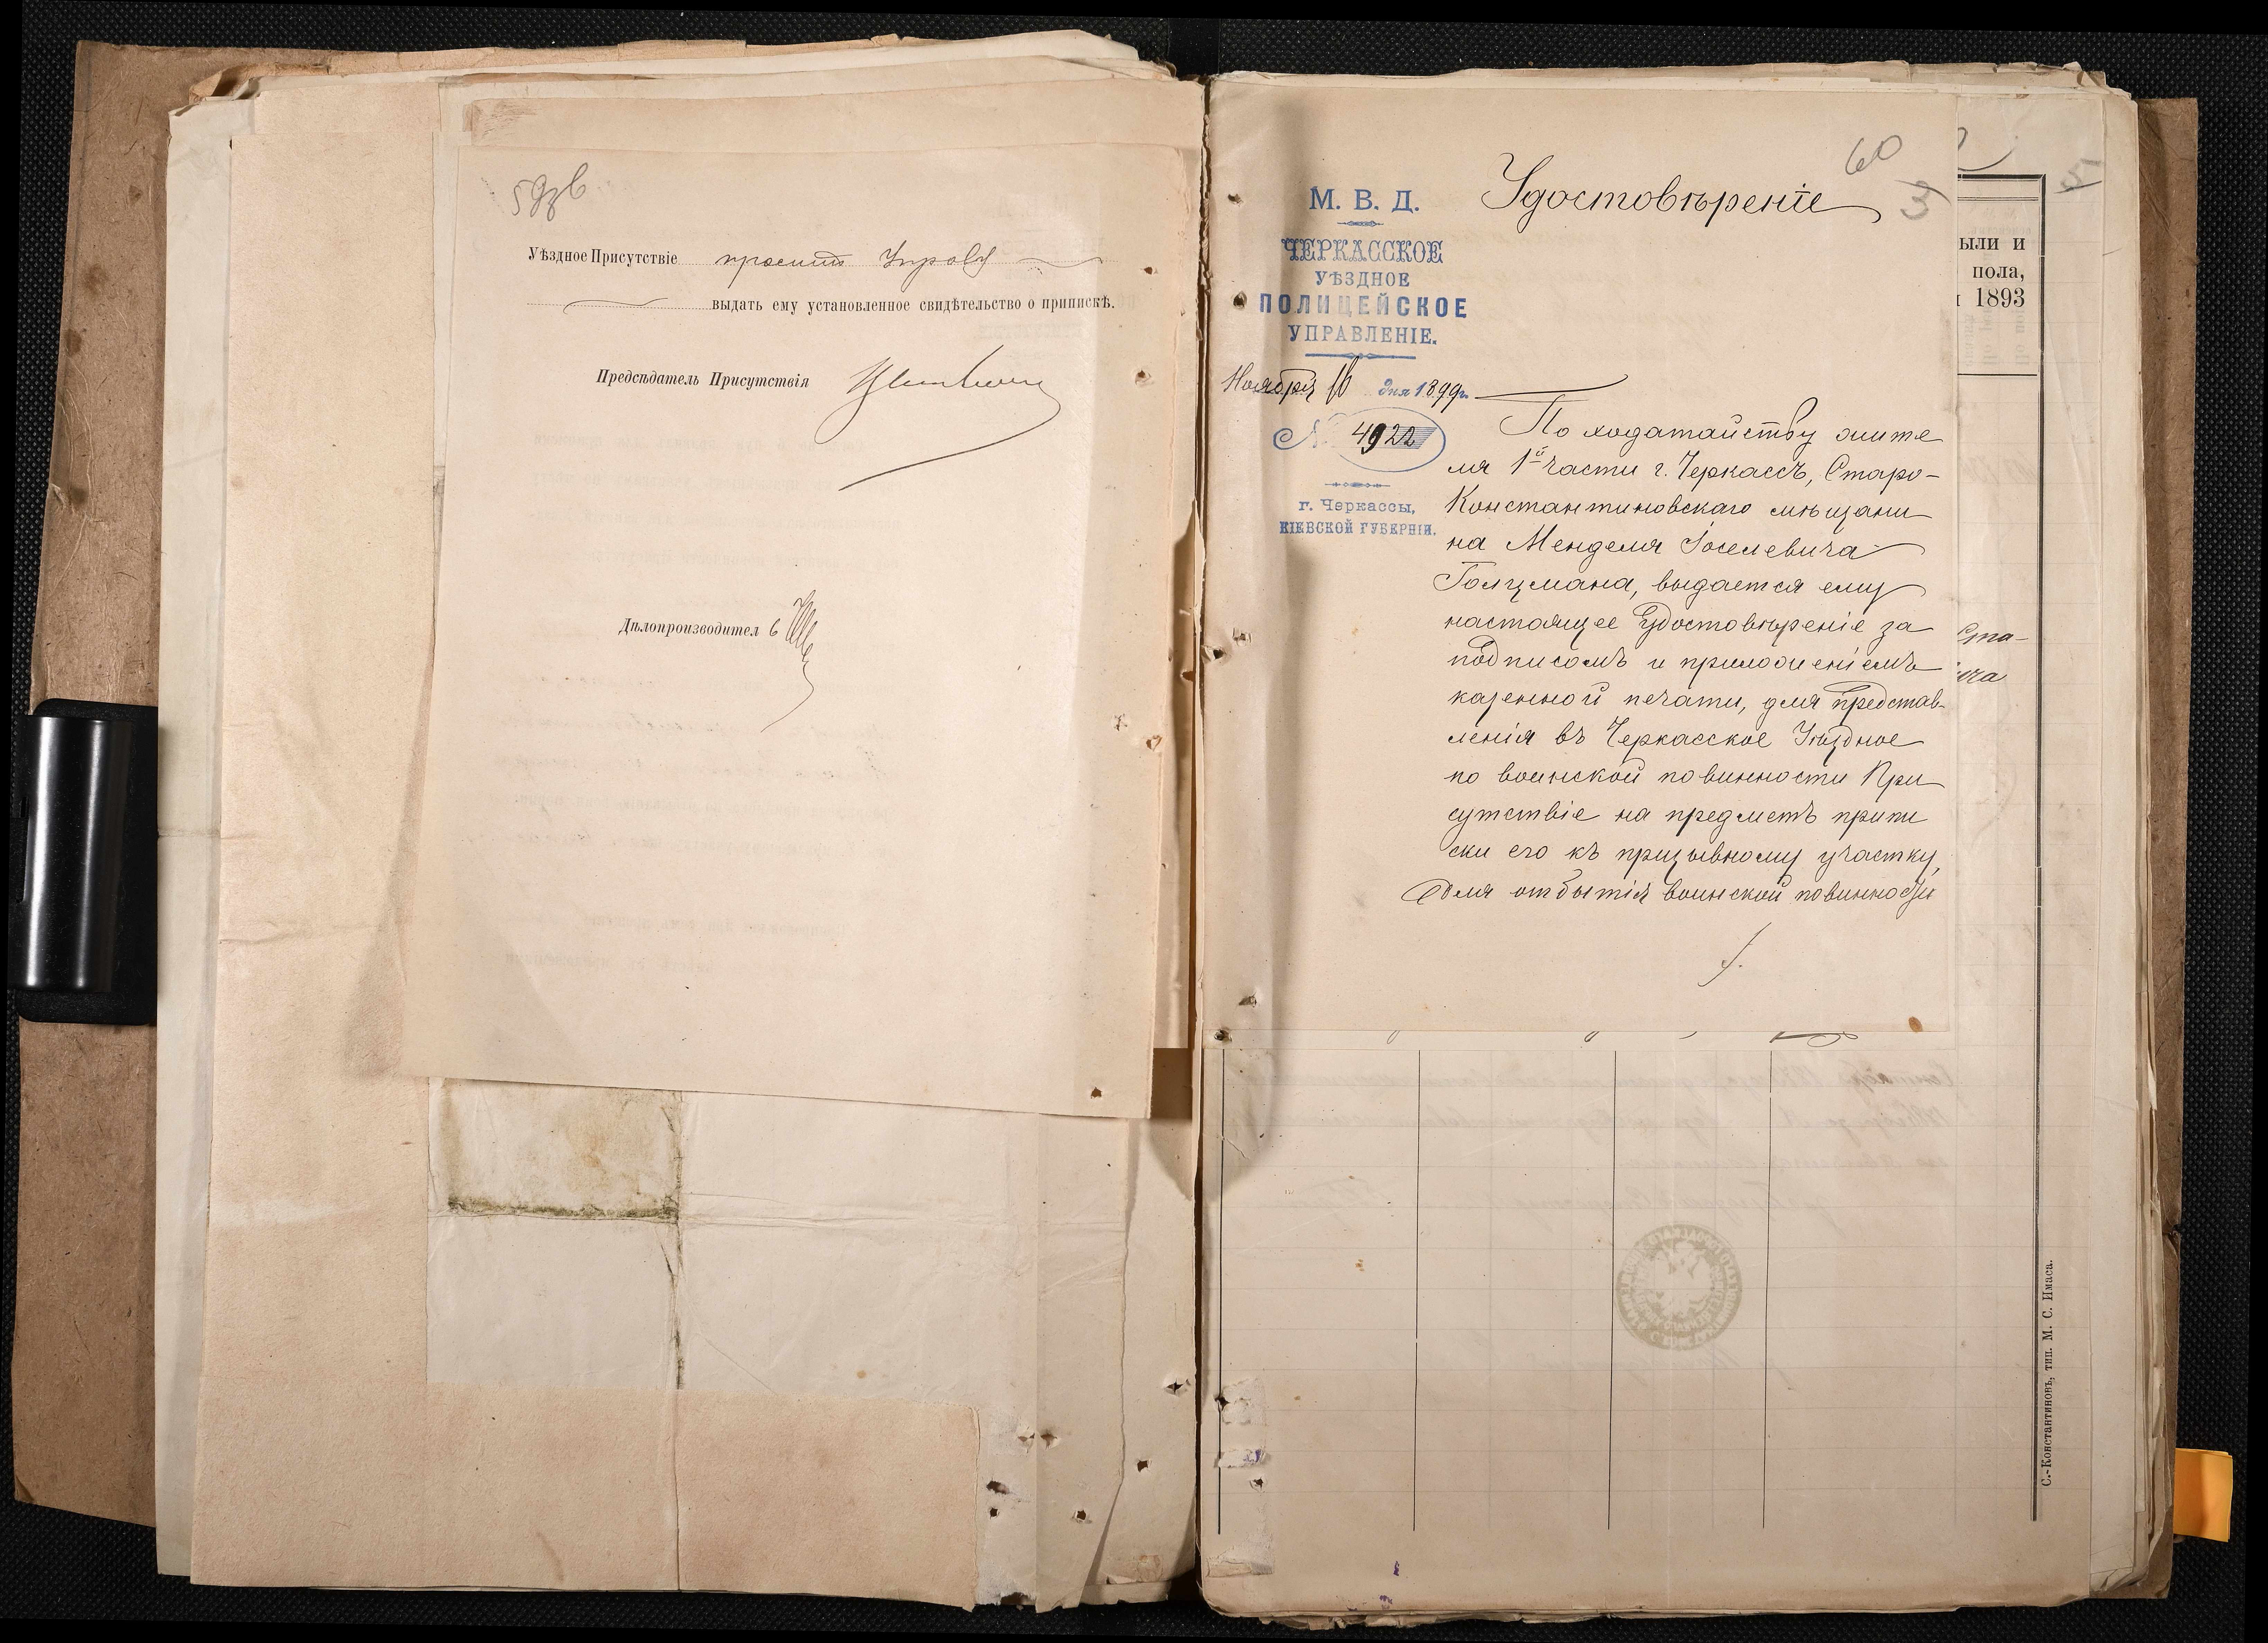 59зв
Уѣздное Присутствіе проситъ Управу
выдать ему установленное свидѣтельство о припискѣ.
Предсѣдатель Присутствія
Дѣлопроизводител ь
60
3
Удостовѣреніе
М. В. Д.
ЧЕРКАССКОЕ
УѢЗДНОЕ
ПОЛИЦЕЙСКОЕ
УПРАВЛЕНІЕ.
Ноября 16 дня 1899 г.
№ 4922
г. Черкассы,
КІЕВСКОЙ ГУБЕРНІИ.
По ходатайству жите
ля 1й части г. Черкассъ, Старо-
Константиновскаго мѣщани
на Менделя Іоселевича
Голцмана, выдается ему
настоящее удостовѣреніе за
подписомъ и приложеніемъ
казенной печати, для представ-
ленія въ Черкасское Уѣздное
по воинской повинности При
сутствіе на предметъ припи
ски его къ призывному участку,
для отбытія воинской повинности
ыли и
пола,
1893
Ста-
ича
5
С.-Константиновъ, тип. М. С. Имаса.